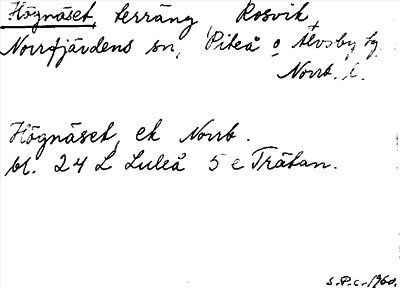 Högnäset, terräng Rosvik
Norrfjärdens sn, Piteå o Älvsby tg.
Norrb. l.
Högnäset, ek Norrb.
bl. 24 L Luleå 5 e Trätan.
S.P.c. 1960.